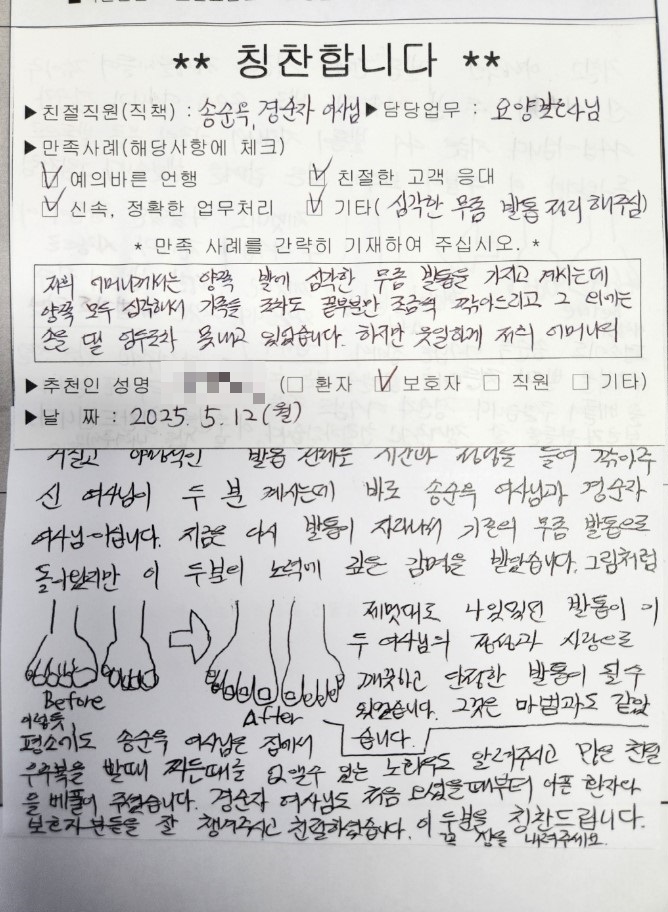 ** 칭찬합니다 **
▶친절직원(직책) : 송순옥 경순자 여사님 ▶담당업무 : 요양보호사님
▶만족사례(해당사항에 체크)
예의바른 언행 친절한 고객 응대
신속, 정확한 업무처리 기타( 심각한 무좀 발톱 정리 해주심)
* 만족 사례를 간략히 기재하여 주십시오. *
저희 어머니께서는 양쪽 발에 심각한 무좀 발톱을 가지고 계시는데
양쪽 모두 심각해서 가족들 조차도 끝부분만 조금씩 깎아드리고 그 외에는
손을 댈 엄두조차 못내고 있었습니다. 하지만 유일하게 저희 어머니의
▶추천인 성명 (□ 환자 보호자 □ 직원 □ 기타)
▶날 짜 : 2025. 5. 12 (월)
거칠고 야만적인 발톱 전체를 시간과 정성을 들여 깎아주
신 여사님이 두 분 계시는데 바로 송순옥 여사님과 경순자
여사님이십니다. 지금은 다시 발톱이 자라나서 기존의 무좀 발톱으로
돌아왔지만 이 두분의 노력에 깊은 감명을 받았습니다. 그림처럼
제멋대로 나있던 발톱이 이
두 여사님의 정성과 사랑으로
깨끗하고 단정한 발톱이 될 수
있었습니다. 그것은 마법과도 같았
습니다.
Before
After
평소에도 송순옥 여사님은 집에서
우주복을 빨때 찌든때를 없앨수 있는 노하우도 알려주시고 많은 친절
을 베풀어 주셨습니다. 경순자 여사님도 처음 오셨을때부터 아픈 환자와
보호자분들을 잘 챙겨주시고 친절하셨습니다. 이 두분을 칭찬드립니다.
꼭 상을 내려주세요.